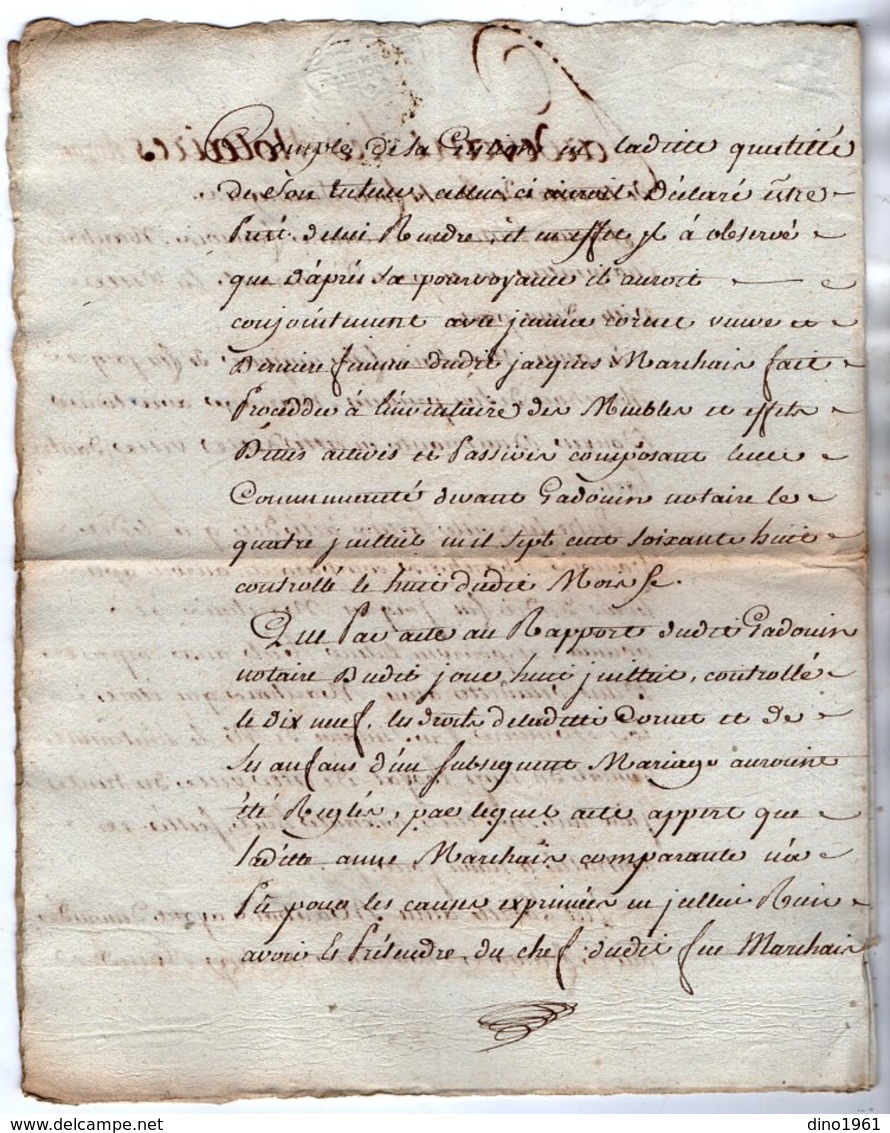 Compte de sa Gestion en laditte qualitté
de son tuteur, a celui ci auroit Déclaré être
Prêt de lui Rendre, et en effet il à observé
que D'après sa pourvoyance il auroit
conjointement avec jeanne cornet veuve et
Derniere femme dudit jacques Marchais fait
Proceddé à l'inventaire des Meubles et effets
Dettes actives et Passives composant leur
Communauté devant Gadouin notaire le
quatre juillet mil sept cent soixante huit
controllé le huit dudit Mois
Que Par acte au Rapport dudit Gadouin
notaire Dudit jour huit juillet, controllé
le dix neuf, les droits de laditte Cornet et de
ses anfans d'un subsequent Mariage auroient
été Reglés, par lequel acte appert que
laditte anne Marchais comparante n'a
Pû pour les causes exprimées en jcellui Rien
avoir et Prétendre du chef dudit feu Marchais
dino1961